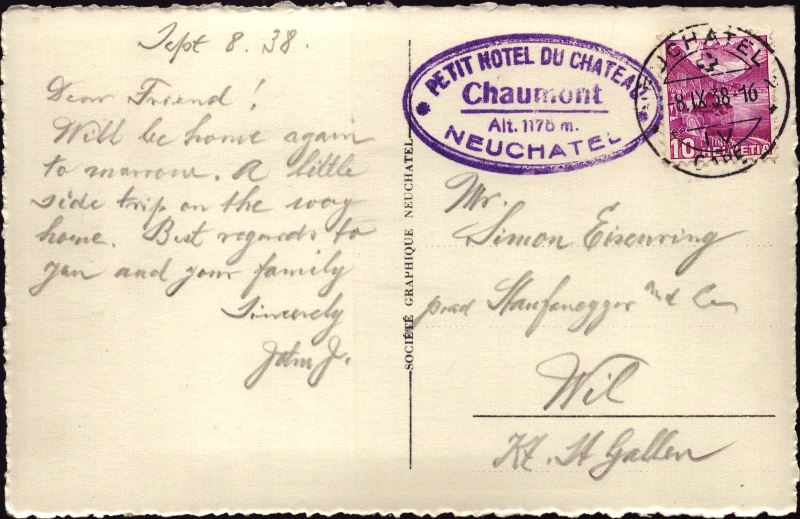 Sept 8. 38.
Dear Friend!
Will be home again
to morrow. A little
side trip on the way
home. Best regards to
you and your family
Sincerely
John J.
SOCIÉTÉ GRAPHIQUE NEUCHATEL
PETIT HOTEL DU CHATEAU
Chaumont
Alt. 1178 m.
NEUCHATEL
NEUCHATEL 2
8.IX.38-16
GARE
10 HELVETIA
Mr.
Simon Eisenring
Wil
Kt. St Gallen